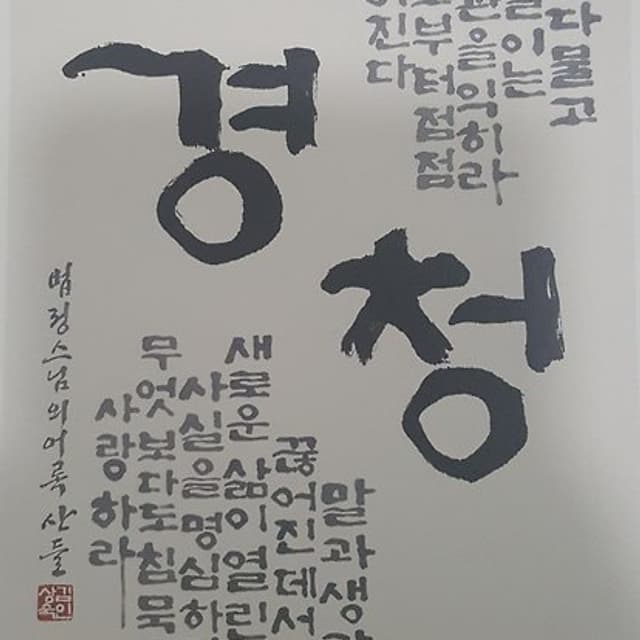 다물고
이는
관을익히라
부터점점
진다
경청
말과생
끊어진데서
새로운삶이열린
사실을명심하
무엇보다도침묵
사랑하라
법정스님의어록 산들